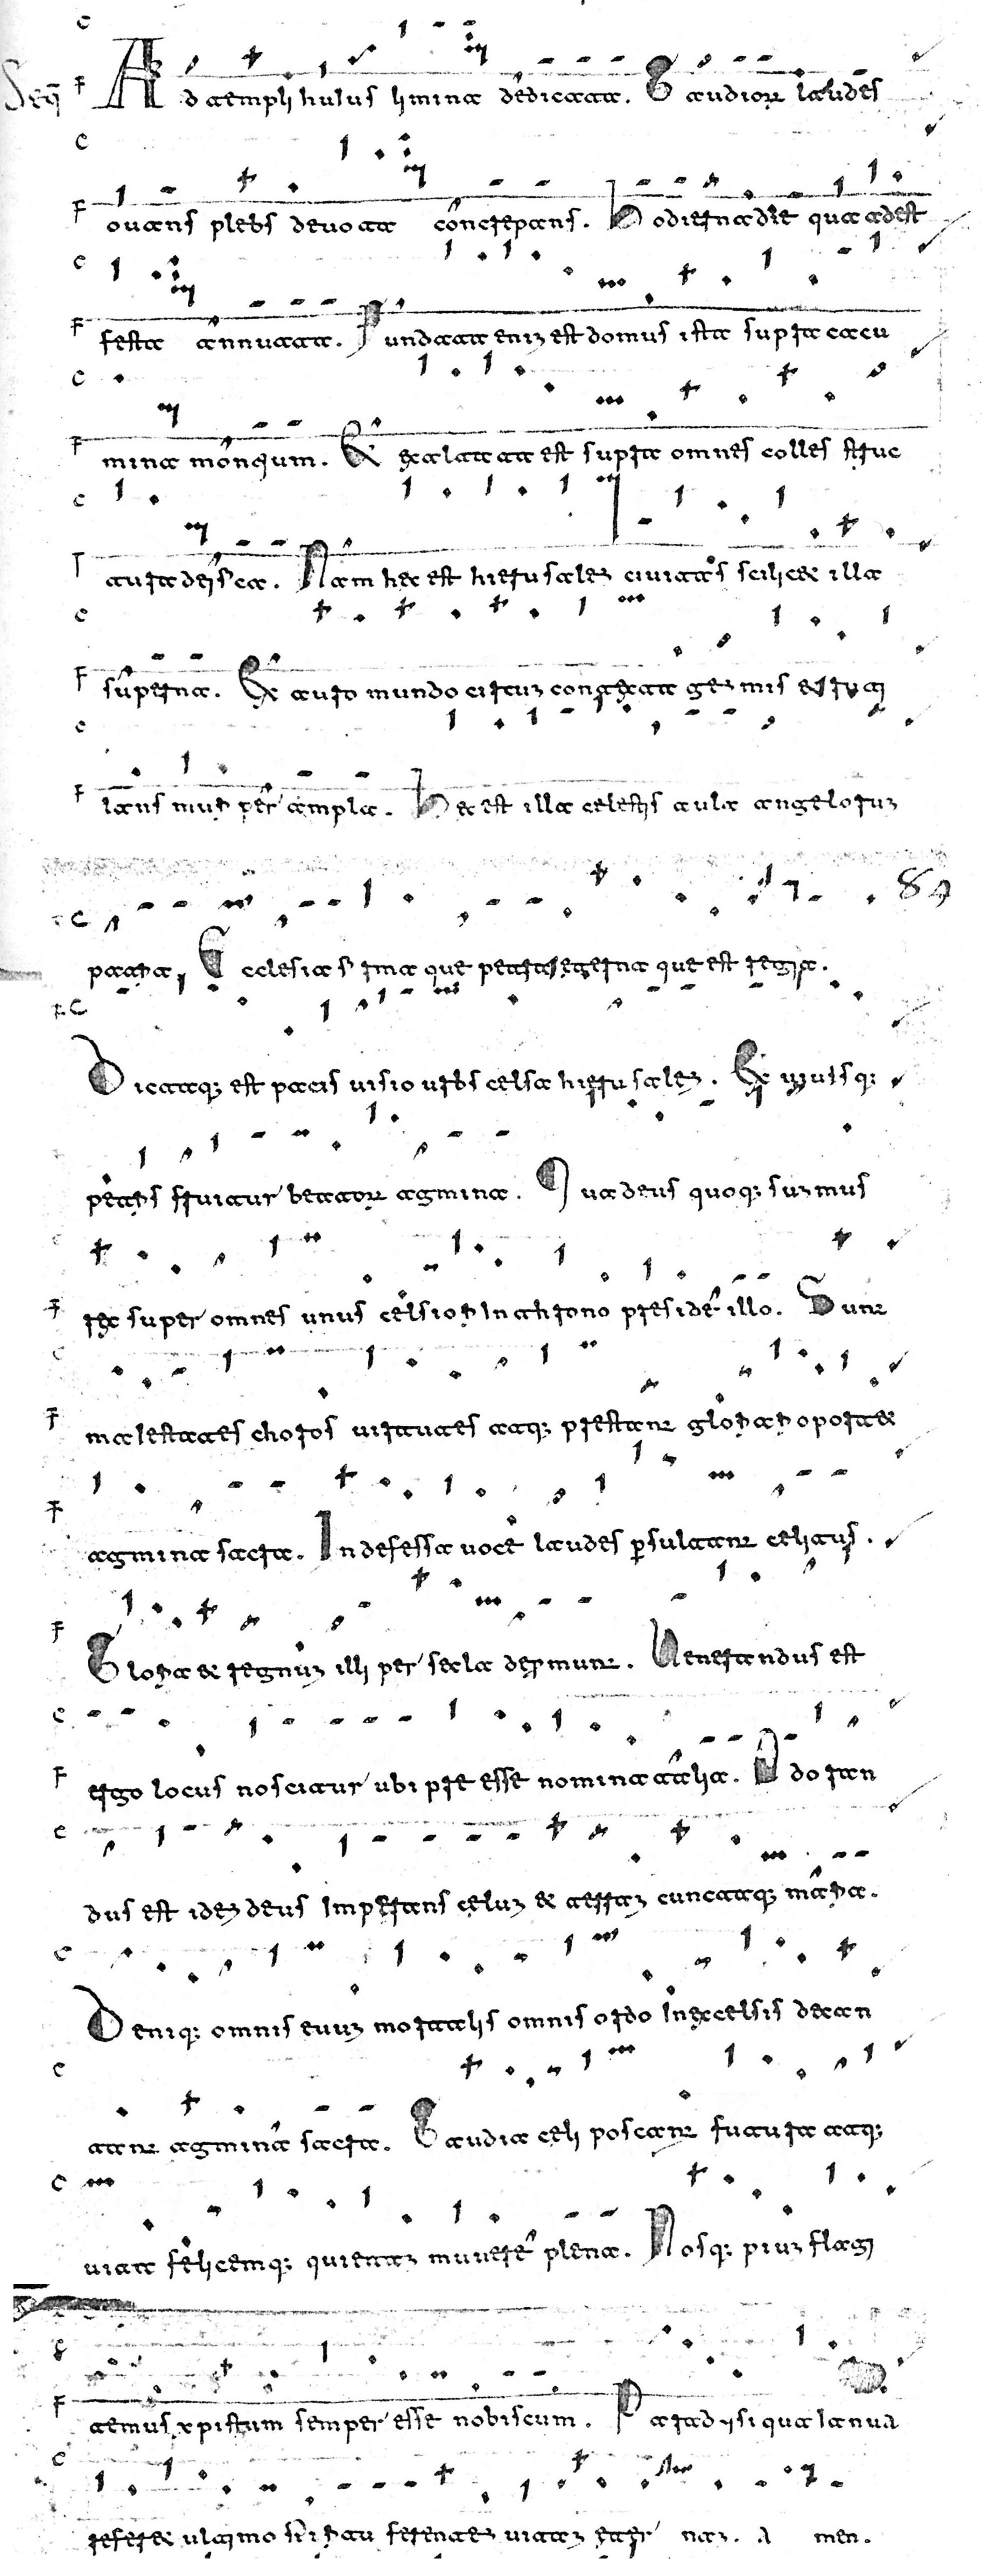 Seq̃ Ad templi huius limina dedicata. Gaudiorum laudes
ouans plebs deuota concrepans. Hodierna die qua adest
festa annuata. Fundata enim est domus ista supra cacu
mina montium. Et exaltata est supra omnes colles struc
tura deifica. Nam hec est hierusalem ciuitas scilicet illa
superna. Ex auro mundo circum contexta gemmis et ruti
lans muri per ampla. Hec est illa celestis aula angelorum
patria. Ecclesia firma que petra eterna que est regia. 89
Dicataque est pacis uisio urbs celsa hierusalem. Ex uiuisque
petris struitur beatorum agmina. Qua deus quoque summus
rex super omnes unus celsiori in throno presidet illo. Sunt
maiestates choros uirtutes atque prestant gloria roborat et
agmina sacra. Indefessa uoce laudes persultant celitus.
Gloria et regnum illi per secla depromunt. Uenerandus est
ergo locus noscitur ubi pre esse nomina talia. Adoran
dus est idem deus imperans celum et terram cunctaque maria.
Denique omnis euum mortalis omnis ordo in excelsis decan
tant agmina sacra. Gaudia celi poscant fructura atque
uita felicemque quietam munere plena. Nosque pium flagi
temus xpistum semper esse nobiscum. Paradysi qua ianua
reseret ultimo sibi tau serenatem uitam eter nam. A men.